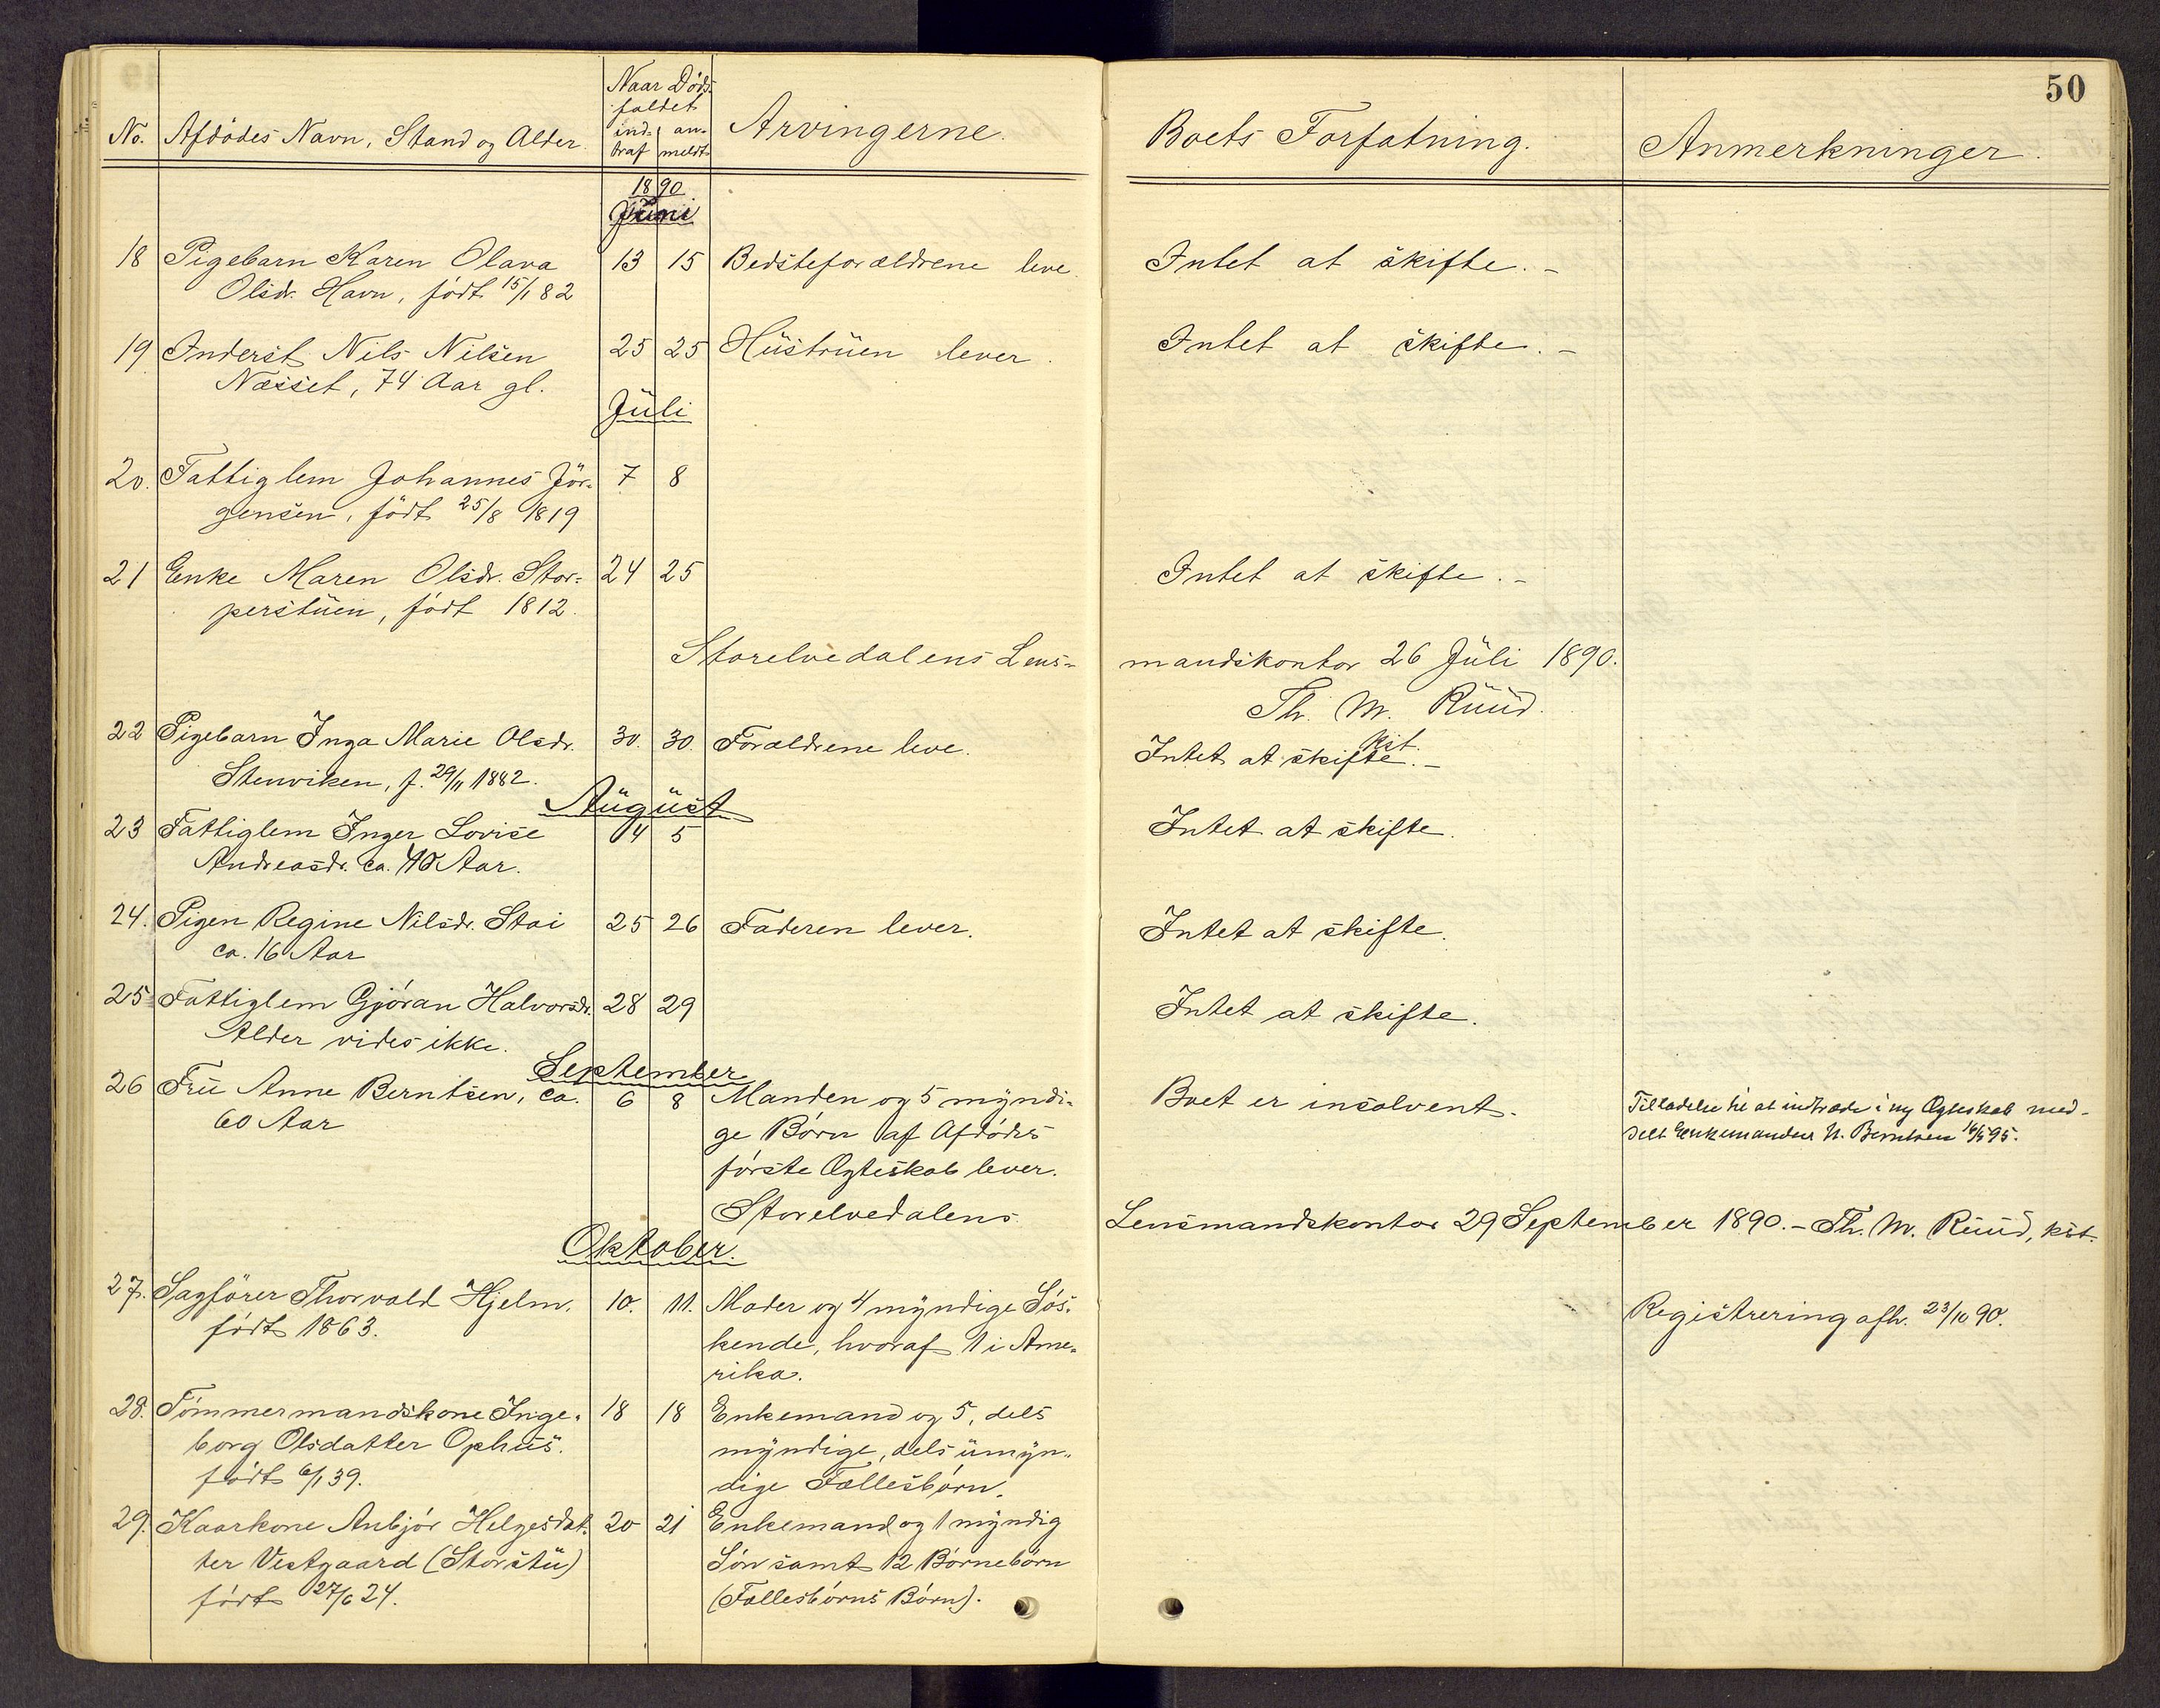 50
No. Afdödes Navn, Stand og Alder. Naar Döds- Arvingerne. Boets Forfatning. Anmerkninger.
faldet
ind- an-
traf meldt
1890
Juni
18 Pigebarn Karen Olava 13 15 Bedsteforældrene leve. Intet at skifte. -
Olsdr. Havn, födt 15/1 82
19 Inderst Nils Nilsen 25 25 Hüstrüen lever. Intet at skifte. -
Næsset, 74 Aar gl.
Jüli
20. Fattiglem Johannes Jör- 7 8
gensen, födt 25/8 1819
21 Enke Maren Olsdr. Stor- 24 25 Intet at skifte. -
perstüen, födt 1812.
Storelvedalens Lens- mandskontor 26 Jüli 1890.
Th. M. Rüüd.
kst.
22 Pigebarn Inga Marie Olsdr. 30. 30. Forældrene leve. Intet at skifte. -
Stenviken, f. 29/11 1882.
Aügüst
23 Fattiglem Inger Lovise 4 5 Intet at skifte.
Andreasdr. ca. Aar.
24. Pigen Regine Nilsdr. Stai 25 26 Faderen lever. Intet at skifte.
ca. 16 Aar
25 Fattiglem Gjöran Halvorsdr. 28 29 Intet at skifte.
Alder vides ikke.
September
26 Frü Anne Berntsen, ca. 6 8 Manden og 5 myndi- Boet er insolvent. Tilladelse til at indtræde i ny Ægteskab med-
60 Aar ge Börn af Afdödes delt Enkemanden N. Berntsen 14/5 95.
förste Ægteskab lever.
Storelvedalens Lensmandskontor 29 September 1890. - Th. M. Rüüd, kst.
Oktober.
27. Sagförer Thorvald Hjelm. 10. 11. Moder og 4 myndige Sös- Registrering afh. 23/10 90.
födt 1863. kende, hvoraf 1 i Ame-
rika.
28. Tömmermandskone Inge- 18 18 Enkemand og 5, dels
borg Olsdatter Ophüs. myndige, dels ümyn-
födt 6/1 39. dige Fællesbörn.
29. Kaarkone Anbjör Helgesdat- 20 21 Enkemand og 1 myndig
ter Vestgaard (Storstü) Sön samt 12 Börnebörn
födt 27/6 24. (Fællesbörns Börn).